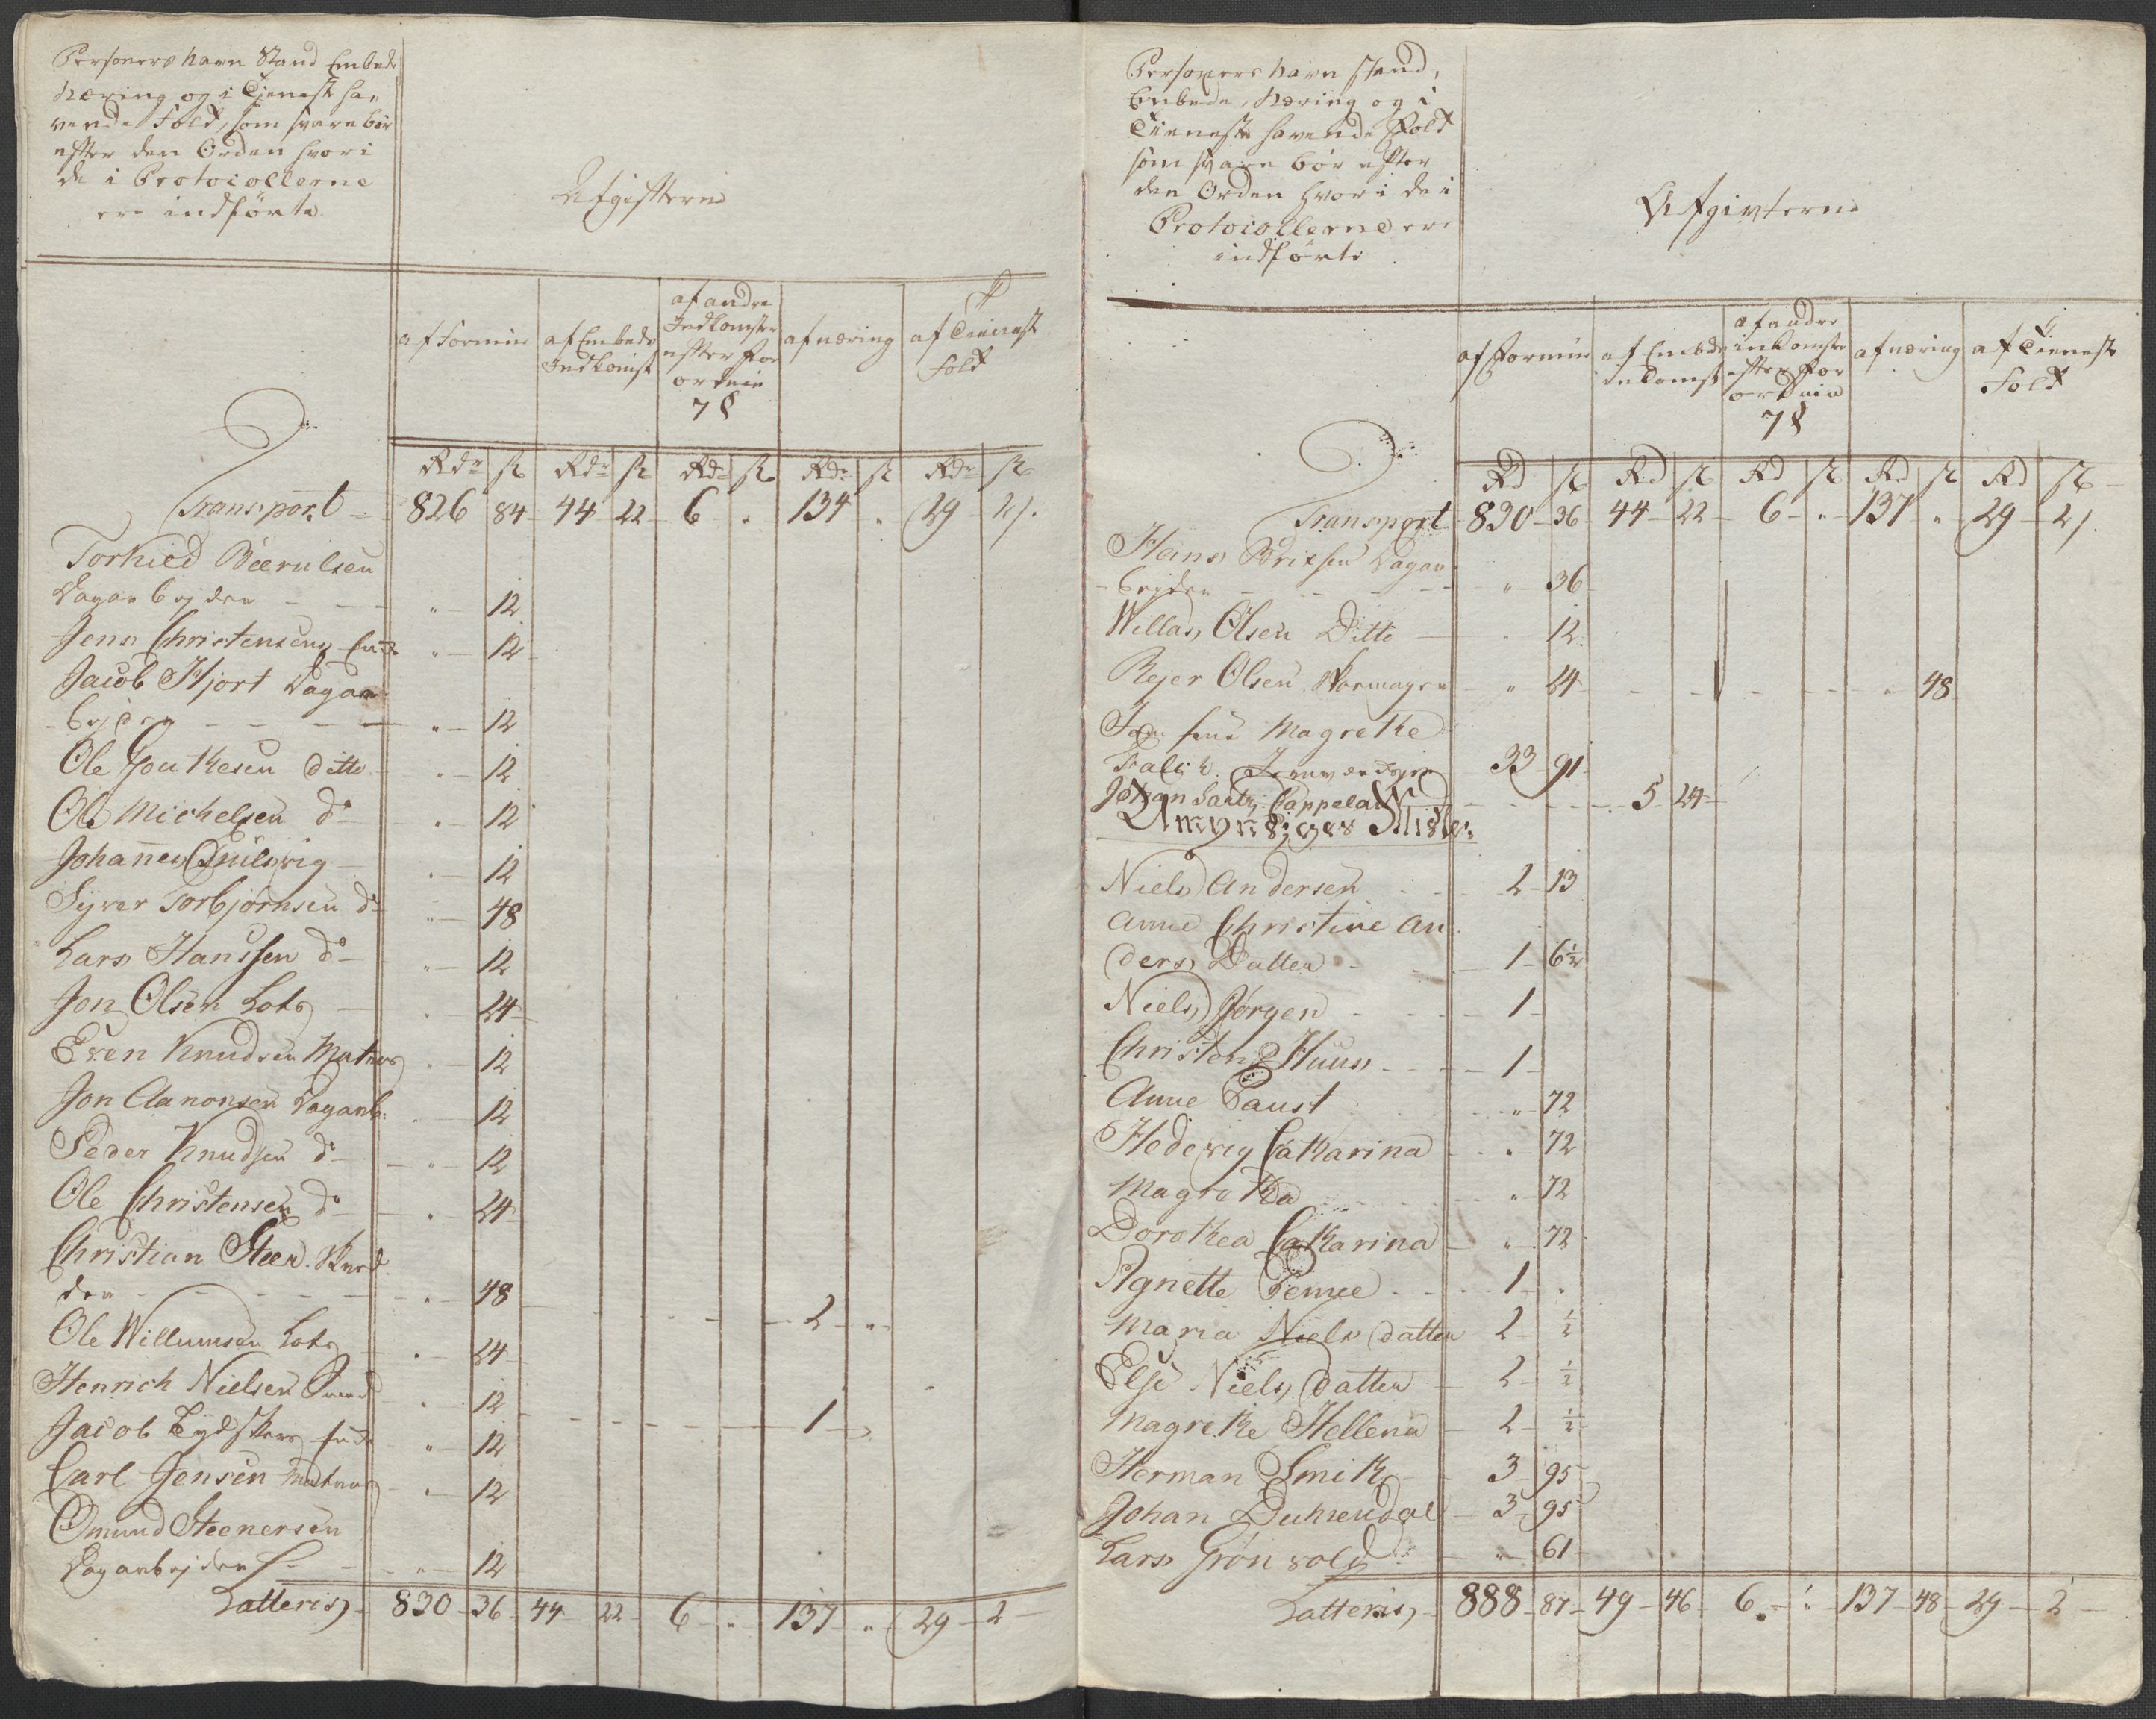 Personers Navn Stand Embede
Næring og i Tjeneste ha-
vende Folk, som svare bør
efter den Orden hvori
de i Protocollerne
ere indførte.
Afgifterne
af Formue
af Embeds Indkomst
af andre Indkomster efter For ordnin 7 §
af næring
af Tieneste Folk
Rdr ß Rdr ß Rdr ß Rdr ß Rdr ß
Transport 826 84 44 22 6 " 134 " 29 2
Torkild
Dagarbejder " 12
Jens Christensens Enke " 12
Jacob Hjort Dagar
bejder " 12
Ole Gouthesen ditto " 12
Ole Michelsen do " 12
Johannes " 12
Syver Torbjørnsen do " 48
Lars Hanssen do " 12
Jon Olsen Lots " 24
Even Knudsen Matros " 12
Jon Aanonsen Dagarb: " 12
Peder Knudsen do " 12
Ole Christensen do " 24
Christian Steen Skred
der " 48 2 "
Ole Willumsen Lots " 24
Henrich Nielsen Smed " 12 1 "
Jacob Enke " 12
Carl Jensen Matros " 12
Omund Steenersen
Dagarbejder " 12
Latteris 830 36 44 22 6 " 137 " 29 2
Personers Navn Stand,
Embede, Næring og i
Tieneste havende Folk
som svare bør efter
den Orden hvori de i
Protocollerne ere
indførte
Afgivterne
af Formue
af Embeds indkomst
af andre inkomster efter For ordnin 7 §
af næring
af Tieneste Folk
Rd ß Rd ß Rd ß Rd ß Rd ß
Transport 830 36 44 22 6 " 137 " 29 2
Hans Brixsen Dagar
bejder " 36
Willas Olsen Ditto " 12
Rejer Olsen " 24 " 48
Magrethe
Falch 33 91
Johan Cappelan 5 24
Umyndiges Midler
Niels Andersen 2 13
Anne Christine An
ders Datter 1 6½
Niels Jørgen 1
Christen Huus 1
Anne Faust " 72
Hedevig Catharina " 72
Magretha " 72
Dorothea Catharina " 72
Agnette 1 "
Maria Niels Datter 2 ½
Else Niels Datter 2 ½
Magrethe Hellena 2 ½
Herman Smith 3 95
Johan Duhrendal 3 95
Lars Grønvold " 61
Latteris 888 87 49 46 6 " 137 48 29 2